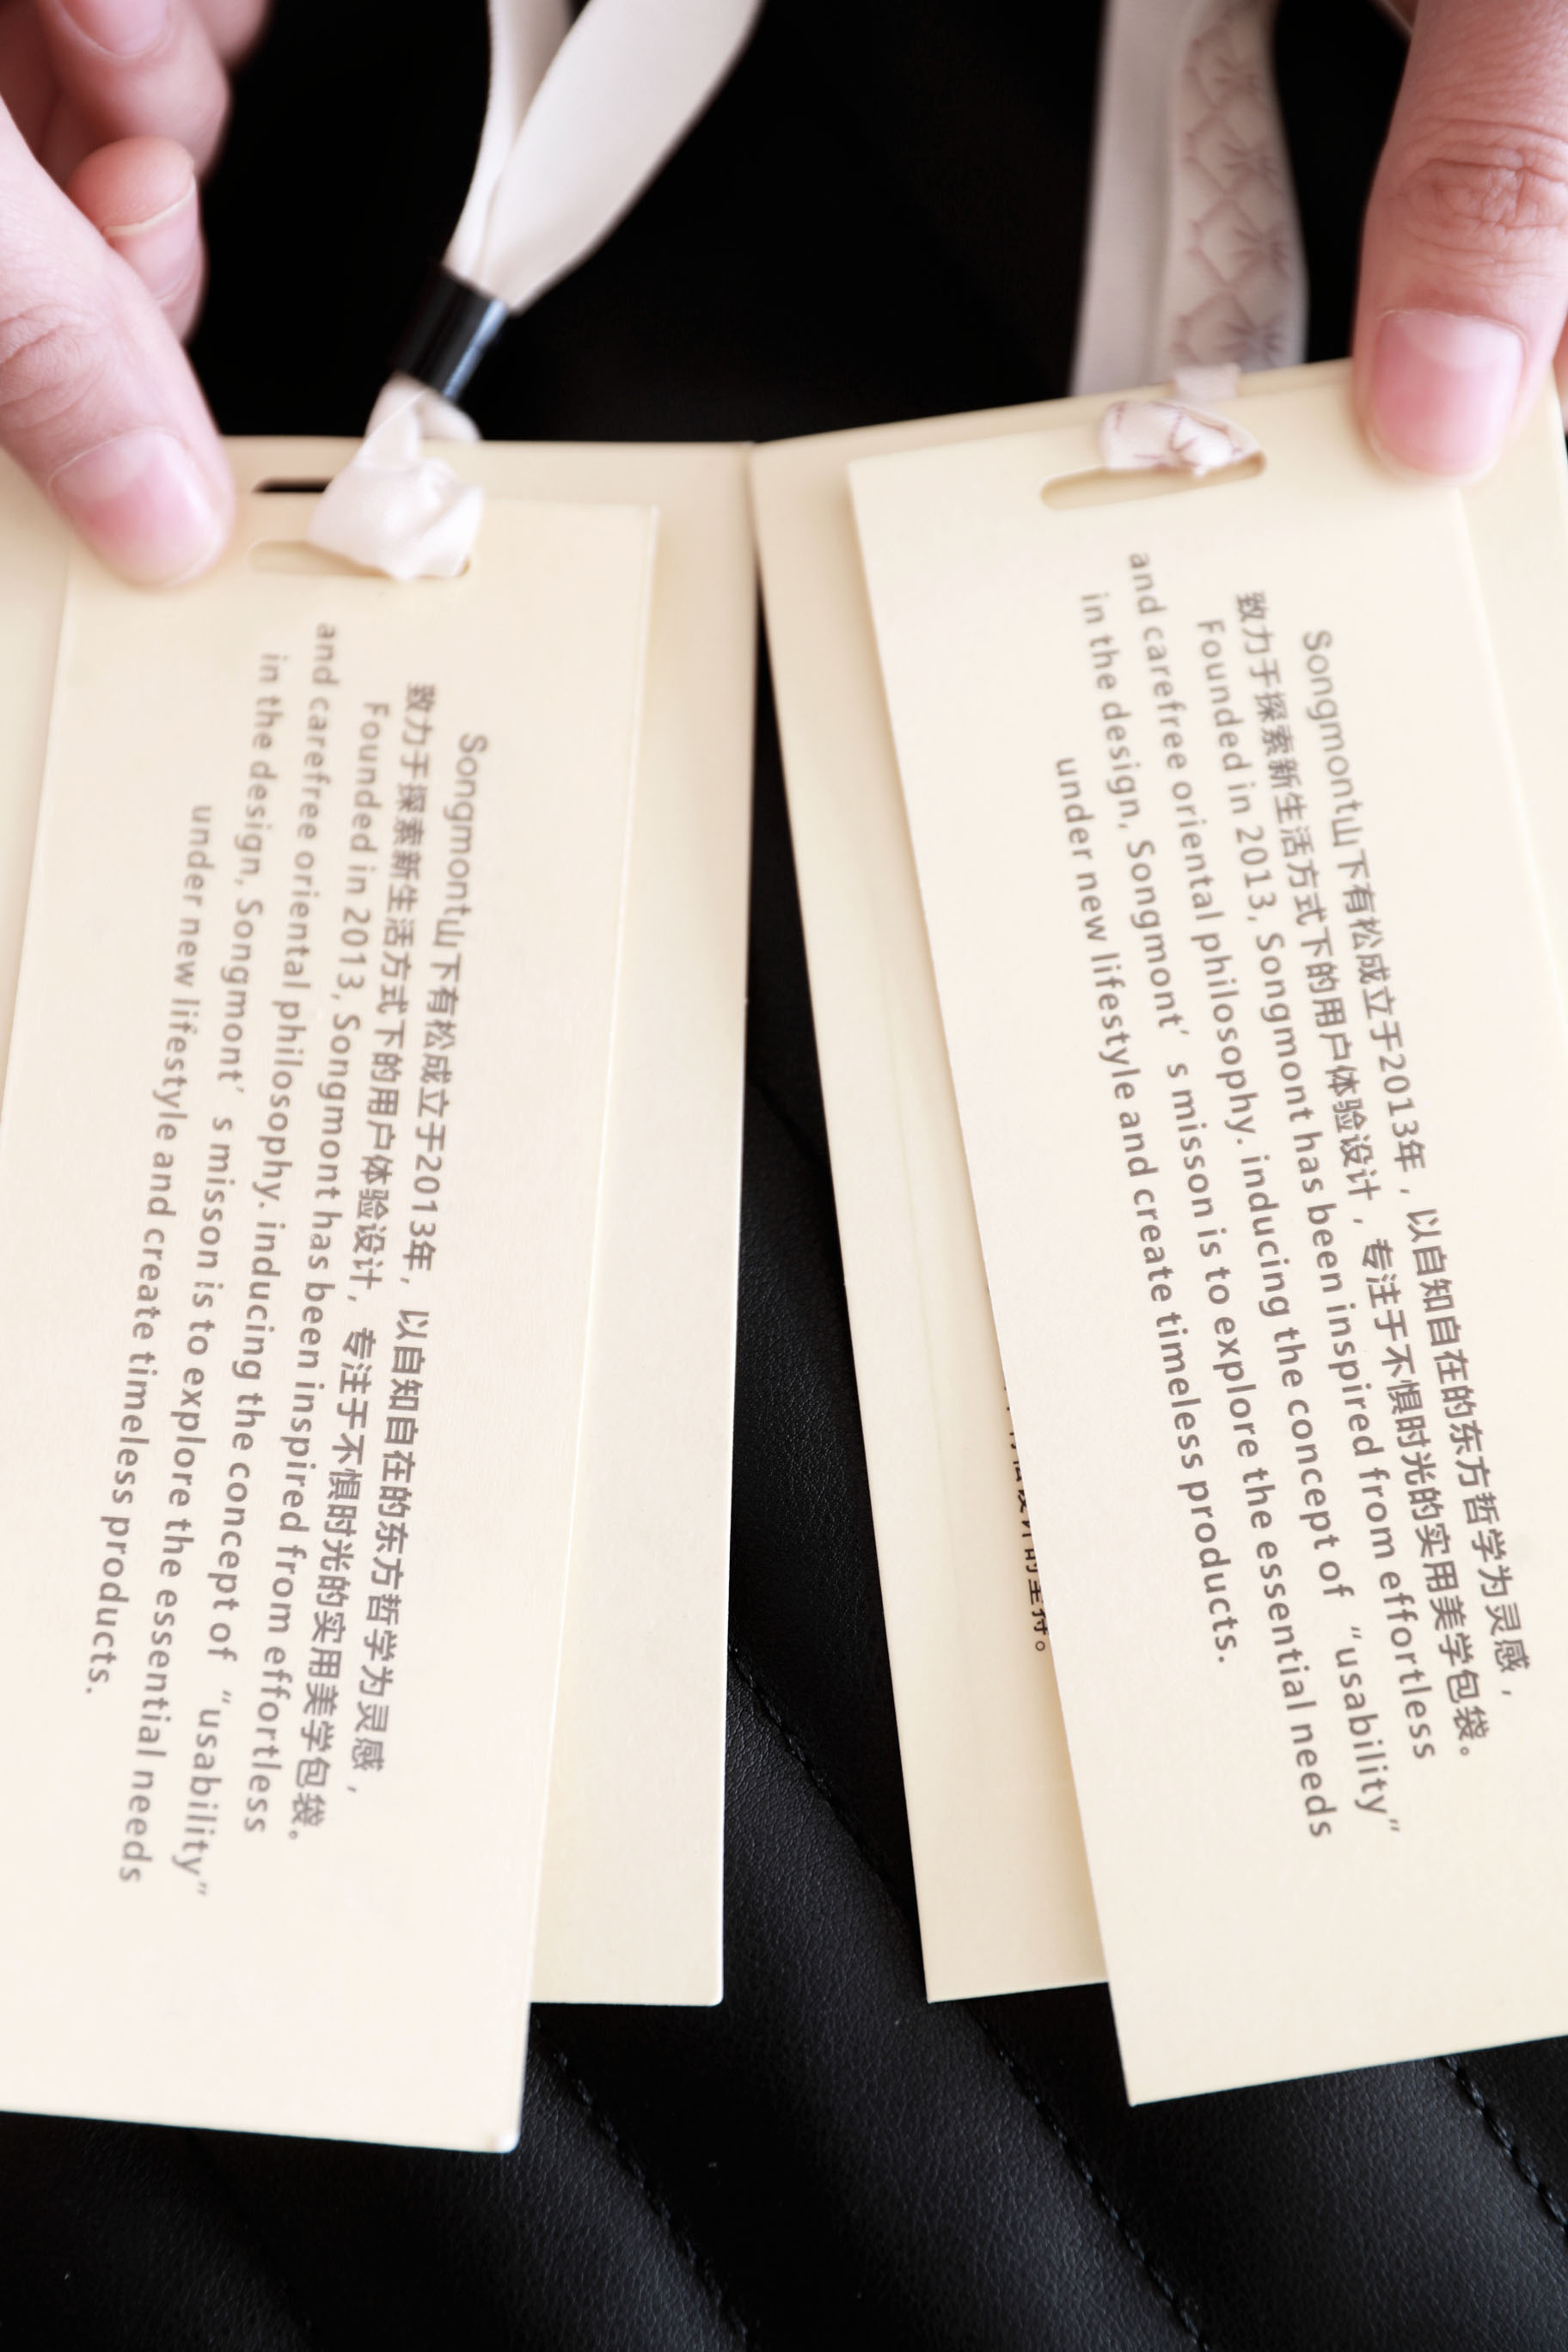 Songmont山下有松成立于2013年，以自知自在的东方哲学为灵感，
致力于探索新生活方式下的用户体验设计，专注于不惧时光的实用美学包袋。
Founded in 2013, Songmont has been inspired from effortless
and carefree oriental philosophy. inducing the concept of “usability”
in the design, Songmont’s misson is to explore the essential needs
under new lifestyle and create timeless products.
Songmont山下有松成立于2013年，以自知自在的东方哲学为灵感，
致力于探索新生活方式下的用户体验设计，专注于不惧时光的实用美学包袋。
Founded in 2013, Songmont has been inspired from effortless
and carefree oriental philosophy. inducing the concept of “usability”
in the design, Songmont’s misson is to explore the essential needs
under new lifestyle and create timeless products.
的坚持。